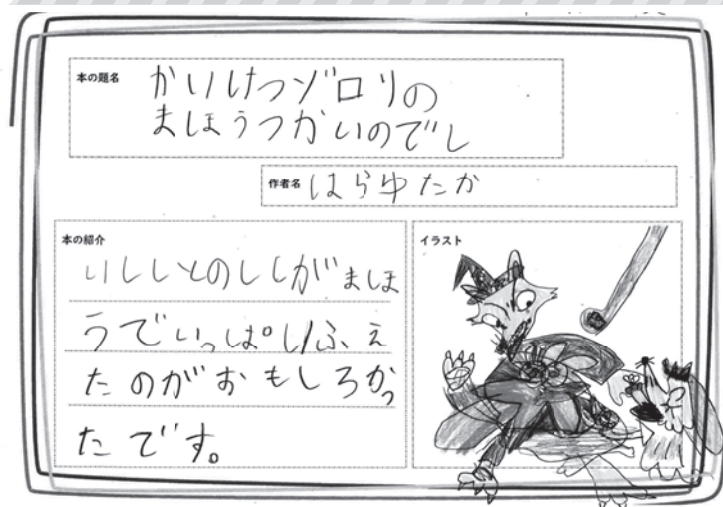 本の題名
かいけつゾロリの
まほうつかいのでし
作者名 はらゆたか
本の紹介
いししとのししがまほ
うでいっぱいふえ
たのがおもしろかっ
たです。
イラスト